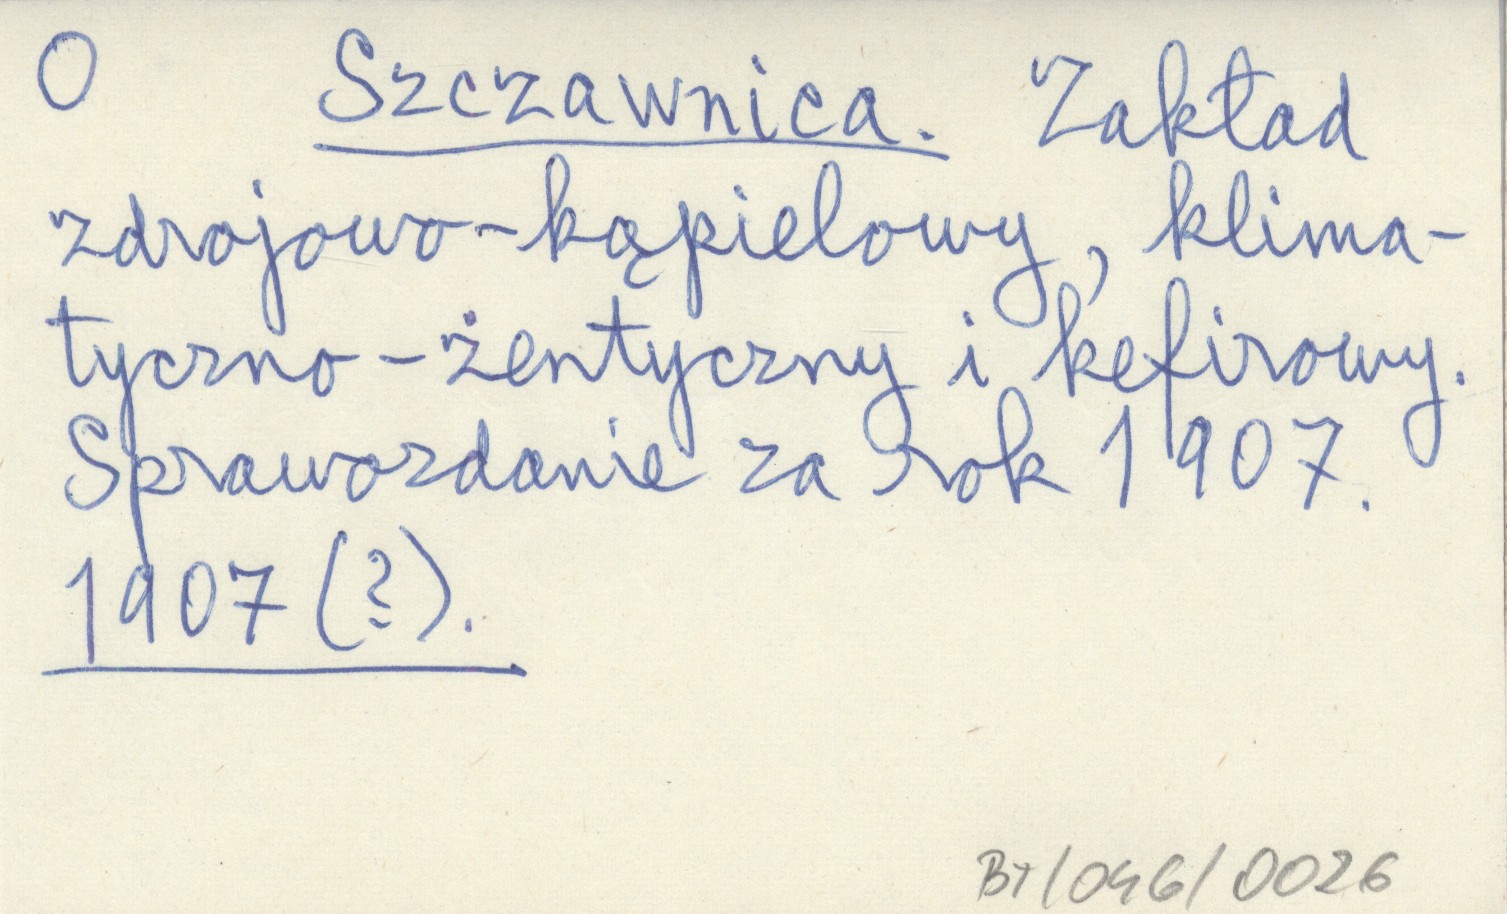 O Szczawnica. Zakład
zdrojowo-kąpielowy, klima-
tyczno-żentyczny i kefirowy.
Sprawozdanie za rok 1907.
1907 (?).
BT/046/0026